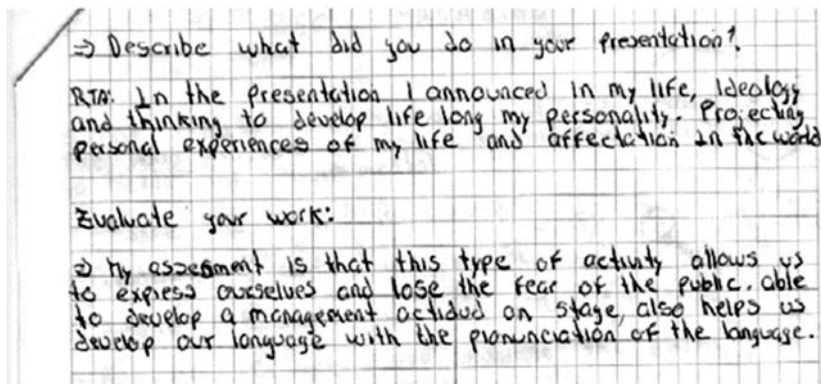 ⇒ Describe what did you do in your presentation?.
RTA: In the presentation I announced in my life, Ideology
and thinking to develop life long my personality. Projecting
personal experiences of my life and affectation in the world
Evaluate your work:
⇒ My assesment is that this type of activity allows us
to express ourselves and lose the fear of the public. able
to develop a management actidud on stage, also helps us
develop our language with the pronunciation of the language.